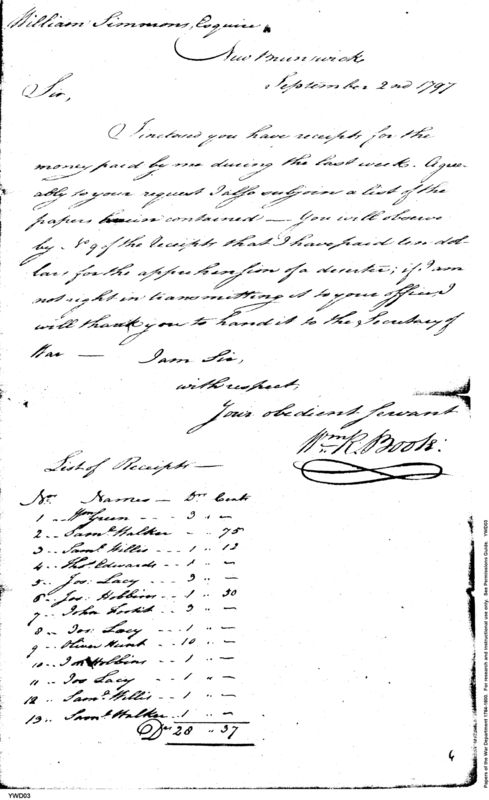 William Simmons, Esquire
New Brunswick
September 2nd 1797
Sir,
Inclosed you have receipts for the
money paid by me during the last week. Agree-
ably to your request I also subjoin a list of the
papers herein contained — You will observe
by No. 9 of the Receipts that I have paid ten dol-
lars for the apprehension of a deserter; if I am
not right in transmitting it to your office, I
will thank you to hand it to the Secretary of
War — I am Sir,
with respect,
Your obedient servant
Wm. R. Book:
List of Receipts —
No. Names — Drs Cents
1 .. Wm Green - - 3 " —
2 .. Saml. Walker - " 75
3 .. Saml. Willis - - - 1 " 12
4 .. Thos. Edwards - - 1 " —
5 .. Jos: Lacy - - - 3 " —
6 .. Jos: Hobbins - - - 1 " 50
7 .. John - - - 3 " —
8 .. Jos: Lacy - - - - 1 " —
9 .. Oliver Hunt - - 10 " —
10 .. Jos Hobbins - - - 1 " —
11 .. Jos Lacy - - - - - 1 " —
12 .. Saml. Willis - - - 1 " —
13 .. Saml. Walker 1 " —
Drs 28 " 37
4
YWD03
Papers of the War Department 1784-1800. For research and instructional use only. See Permissions Guide. YWD03